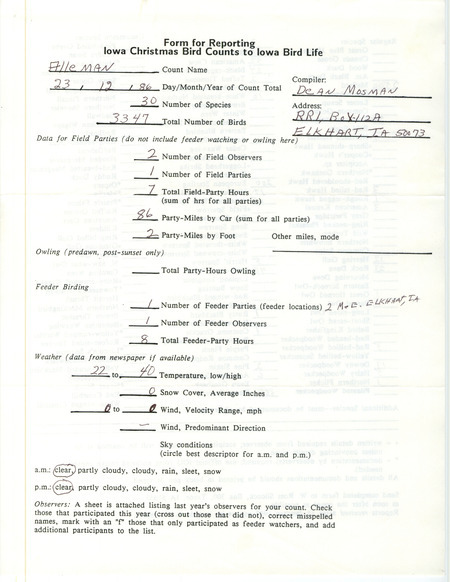 Form for Reporting
Iowa Christmas Bird Counts to Iowa Bird Life
AlleMAN Count Name
23, 12, 86 Day/Month/Year of Count Total
30 Number of Species
3347 Total Number of Birds
Compiler:
DeAN MosMAN
Address:
RR1, Box 112A
ELKHART, IA 50073
Data for Field Parties (do not include feeder watching or owling here)
2 Number of Field Observers
1 Number of Field Parties
7 Total Field-Party Hours
(sum of hrs for all parties)
86 Party-Miles by Car (sum for all parties)
2 Party-Miles by Foot Other miles, mode
Owling (predawn, post-sunset only)
Total Party-Hours Owling
Feeder Birding
1 Number of Feeder Parties (feeder locations) 2 M. E. ELKHART, IA
1 Number of Feeder Observers
8 Total Feeder-Party Hours
Weather (data from newspaper if available)
22 to 40 Temperature, low/high
0 Snow Cover, Average Inches
0 to 0 Wind, Velocity Range, mph
— Wind, Predominant Direction
Sky conditions
(circle best descriptor for a.m. and p.m.)
a.m.: clear, partly cloudy, cloudy, rain, sleet, snow
p.m.: clear, partly cloudy, cloudy, rain, sleet, snow
Observers: A sheet is attached listing last year's observers for your count. Check
those that participated this year (cross out those that did not), correct misspelled
names, mark with an "f" those that only participated as feeder watchers, and add
additional participants to the list.